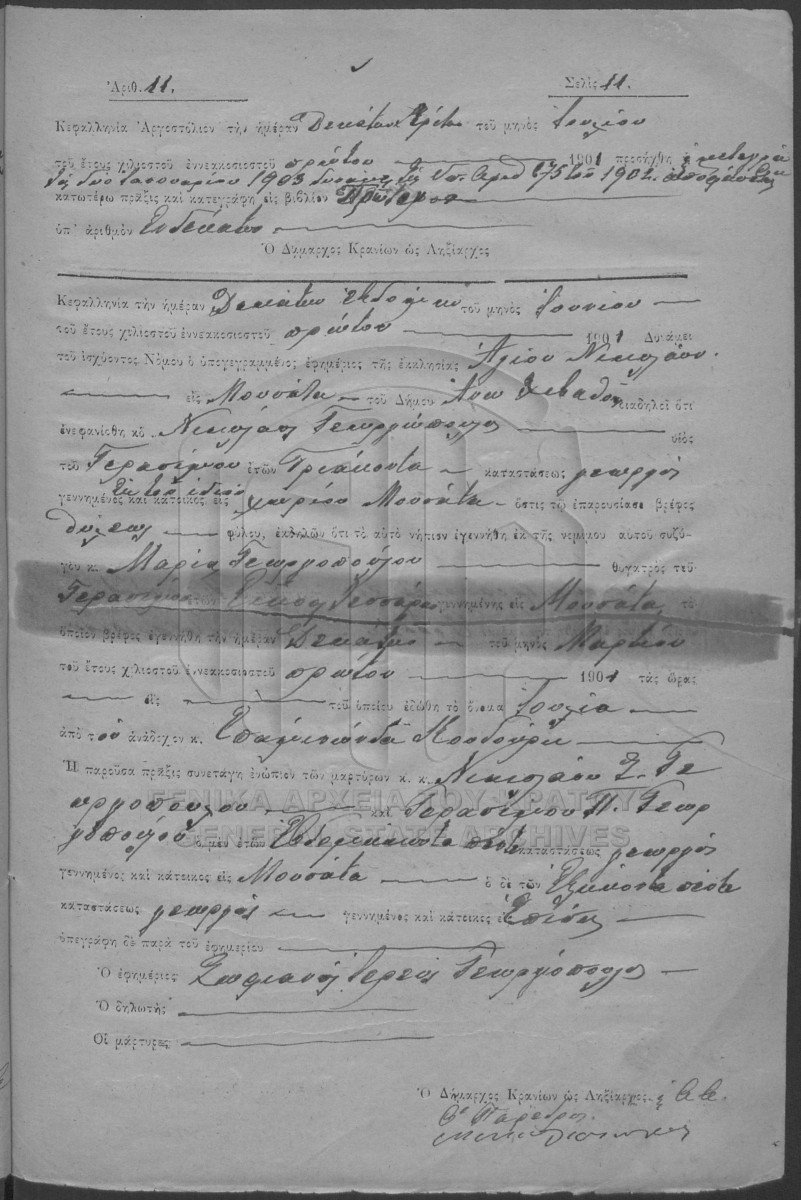 Ἀριθ. 11.
Σελὶς 11.
Κεφαλληνία Ἀργοστόλιον τὴν ἡμέραν Δεκάτην Τρίτην τοῦ μηνὸς Ἰουλίου
τοῦ ἔτους χιλιοστοῦ ἐννεακοσιοστοῦ πρώτου 1901 προσήχθη ἡ
Ἰανουαρίου 1903 1902
κατωτέρω πρᾶξις καὶ κατεγράφη εἰς βιβλίον Πρῶτον
ὑπ' ἀριθμὸν Ἑνδέκατον
Ὁ Δήμαρχος Κρανίων ὡς Ληξίαρχος
Κεφαλληνία τὴν ἡμέραν Δεκάτην Ἑβδόμην τοῦ μηνὸς Ἰουνίου
τοῦ ἔτους χιλιοστοῦ ἐννεακοσιοστοῦ πρώτου 1901 Δυνάμει
τοῦ ἰσχύοντος Νόμου ὁ ὑπογεγραμμένος ἐφημέριος τῆς ἐκκλησίας Ἁγίου Νικολάου
εἰς Μουσάτα τοῦ Δήμου Ἄνω Λειβαθοῦς διαδηλοῖ ὅτι
ἐνεφανίσθη κὁ Νικόλαος Γεωργόπουλος υἱὸς
τοῦ Γερασίμου ἐτῶν Τριάκοντα καταστάσεως γεωργὸς
γεννημένος καὶ κάτοικος εἰς Ἐκ τοῦ ἰδίου χωρίου Μουσάτα ὅστις τῷ ἐπαρουσίασε βρέφος
θήλεως φύλου, ἐκδηλῶν ὅτι τὸ αὐτὸ νήπιον ἐγεννήθη ἐκ τῆς νομίμου αὐτοῦ συζύ-
γου κ. Μαρία Γεωργοπούλου θυγατρὸς τοῦ
Γερασίμου ἐτῶν Εἴκοσι Τεσσάρων γεννημένης εἰς Μουσάτα, τὸ
ὁποῖον βρέφος ἐγεννήθη τὴν ἡμέραν Δεκάτην τοῦ μηνὸς Μαρτίου
τοῦ ἔτους χιλιοστοῦ ἐννεακοσιοστοῦ πρώτου 1901 τὰς ὥρας
εἰς τοῦ ὁποίου ἐδώθη τὸ ὄνομα Ἰουλία
ἀπὸ τοῦ ἀνάδοχον κ. Ἐπαμεινώνδα
Ἡ παροῦσα πρᾶξις συνετάγη ἐνώπιον τῶν μαρτύρων κ. κ. Νικολάου Σ. Γε
ωργοπούλου καὶ Γερασίμου Π. Γεωρ
γοπούλου ὁ μὲν ἐτῶν Ἑβδομήκοντα πέντε καταστάσεως γεωργὸς
γεννημένος καὶ κάτοικος εἰς Μουσάτα ὁ δὲ τῶν Ἑξήκοντα πέντε
καταστάσεως γεωργὸς γεννημένος καὶ κάτοικος εἰς Ἐπίσης
ὑπεγράφη δὲ παρὰ τοῦ ἐφημερίου
Ὁ ἐφημέριος Σωφιανὸς Ἱερεὺς Γεωργόπουλος
Ὁ δηλωτὴς
Οἱ μάρτυρες
Ὁ Δήμαρχος Κρανίων ὡς Ληξίαρχος.
Ὁ Πάρεδρος
ΓΕΝΙΚΑ ΑΡΧΕΙΑ ΤΟΥ ΚΡΑΤΟΥΣ
GENERAL STATE ARCHIVES